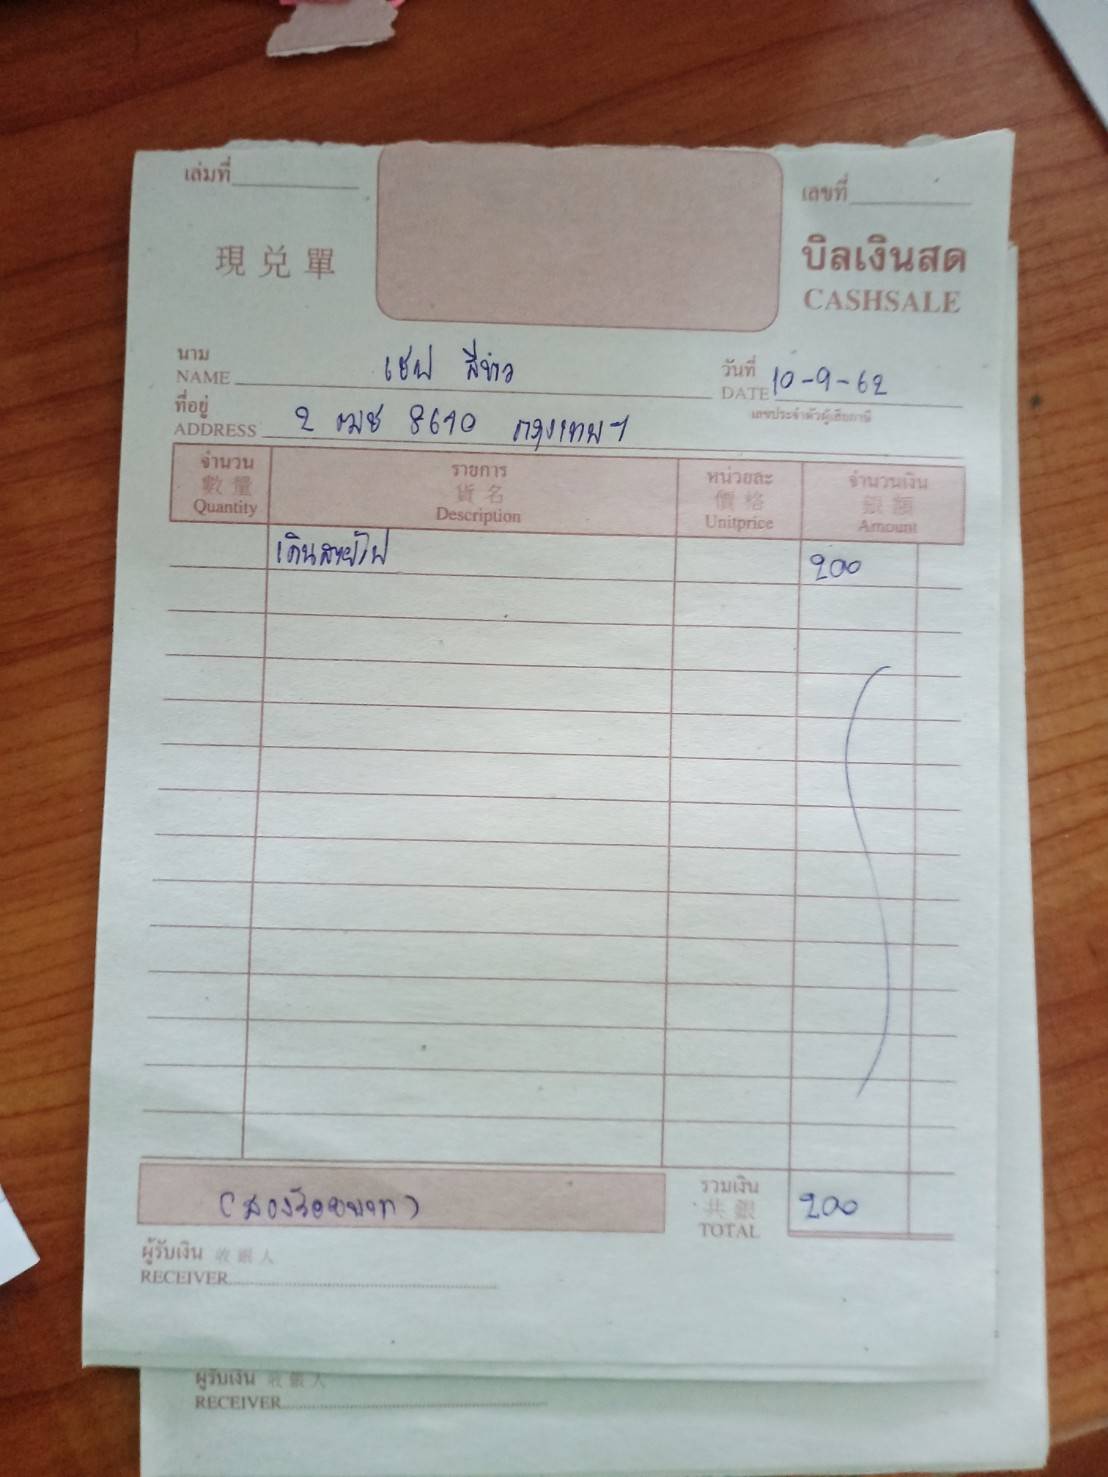 เล่มที่
เลขที่
現兑單
บิลเงินสด
CASHSALE
นาม
NAME เชฟ สีขาว
วันที่
DATE 10-9-62
ที่อยู่
ADDRESS 2 8690 กรุงเทพฯ
เลขประจำตัวผู้เสียภาษี
จำนวน รายการ หน่วยละ จำนวนเงิน
數量 貨名 價格 銀額
Quantity Description Unitprice Amount
เดินสายไฟ 200
รวมเงิน
共銀
TOTAL
(สองร้อยบาท) 200
ผู้รับเงิน 收銀人
RECEIVER
ผู้รับเงิน 收銀人
RECEIVER